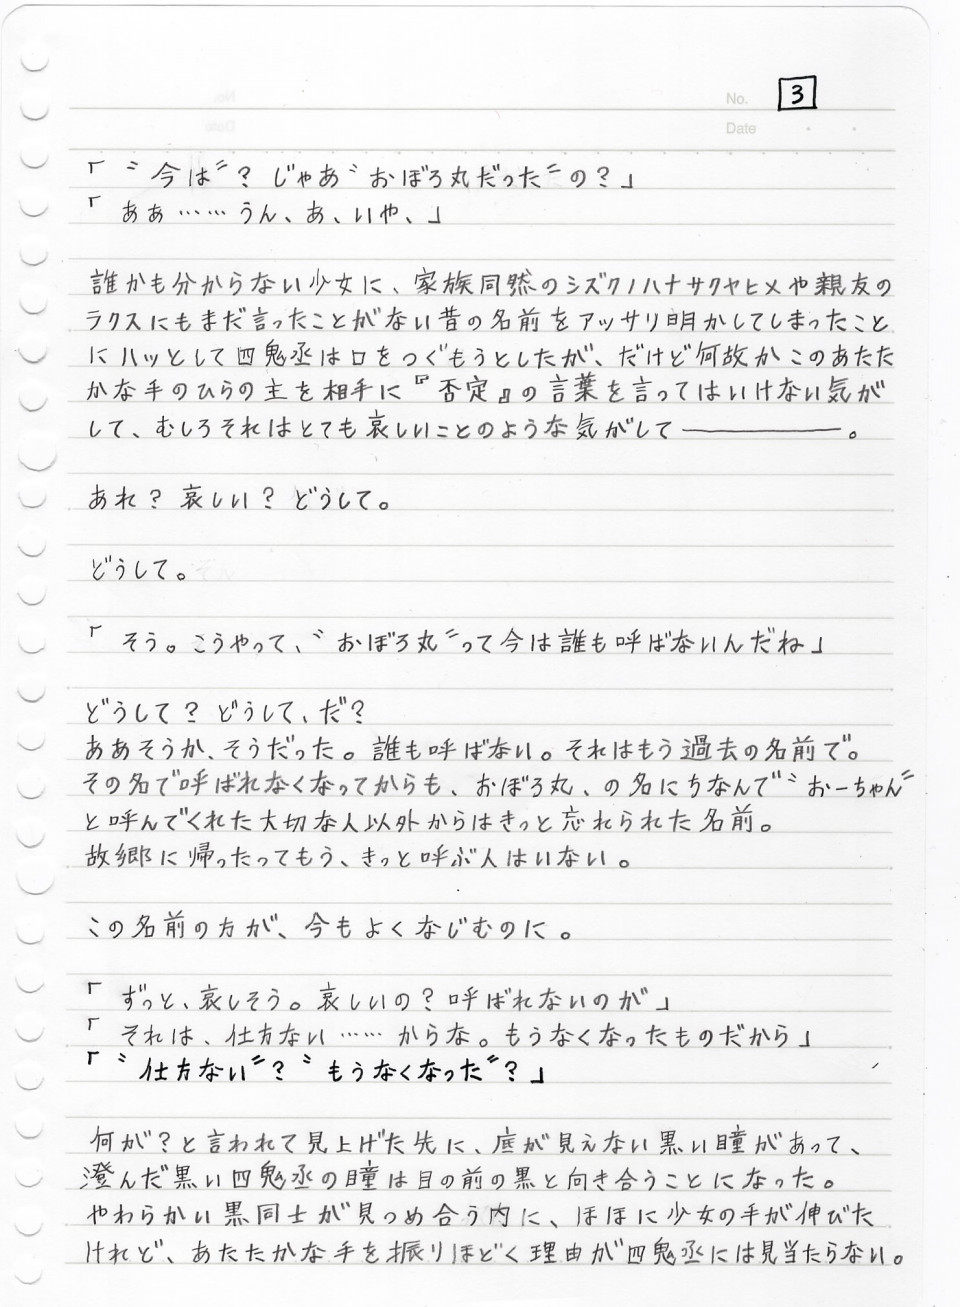 No. 3
Date
「〝今は〟? じゃあ〝おぼろ丸だった〟の?」
「ああ……うん、あ、いや、」
誰かも分からない少女に、家族同然のシズクノハナサクヤヒメや親友の
ラクスにもまだ言ったことがない昔の名前をアッサリ明かしてしまったこと
にハッとして四鬼丞は口をつぐもうとしたが、だけど何故かこのあたた
かな手のひらの主を相手に『否定』の言葉を言ってはいけない気が
して、むしろそれはとても哀しいことのような気がして―――――。
あれ? 哀しい? どうして。
どうして。
「そう。こうやって、〝おぼろ丸〟って今は誰も呼ばないんだね」
どうして? どうして、だ?
ああそうか、そうだった。誰も呼ばない。それはもう過去の名前で。
その名で呼ばれなくなってからも、おぼろ丸、の名にちなんで〝おーちゃん〟
と呼んでくれた大切な人以外からはきっと忘れられた名前。
故郷に帰ったってもう、きっと呼ぶ人はいない。
この名前の方が、今もよくなじむのに。
「ずっと、哀しそう。哀しいの? 呼ばれないのが」
「それは、仕方ない……からな。もうなくなったものだから」
「〝仕方ない〟? 〝もうなくなった〟?」
何が? と言われて見上げた先に、底が見えない黒い瞳があって、
澄んだ黒い四鬼丞の瞳は目の前の黒と向き合うことになった。
やわらかい黒同士が見つめ合う内に、ほほに少女の手が伸びた
けれど、あたたかな手を振りほどく理由が四鬼丞には見当たらない。